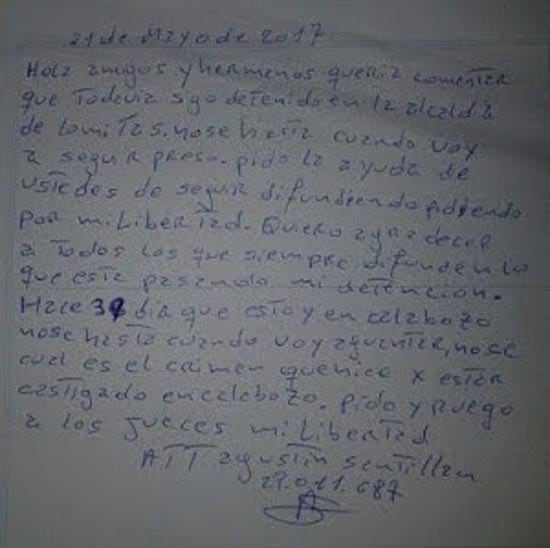 21 de Mayo de 2017
Hola amigos y hermanos queria comentar
que Todavia sgo detenido en la alcaldia
de lomitas. nose hasta cuando voy
a seguir preso. pido la ayuda de
ustedes de seguir difundiendo pidiendo
por mi Libertad. Quiero agradecer
a Todos los que siempre difunden lo
que esta pasando mi detención.
Hace dia que estoy en calabozo
nose hasta cuando voy aguantar, nose
cual es el crimen que hice x estar
castigado en calabozo. pido y ruego
a los jueces mi Libertad
ATT agustin santillan
29.011.687